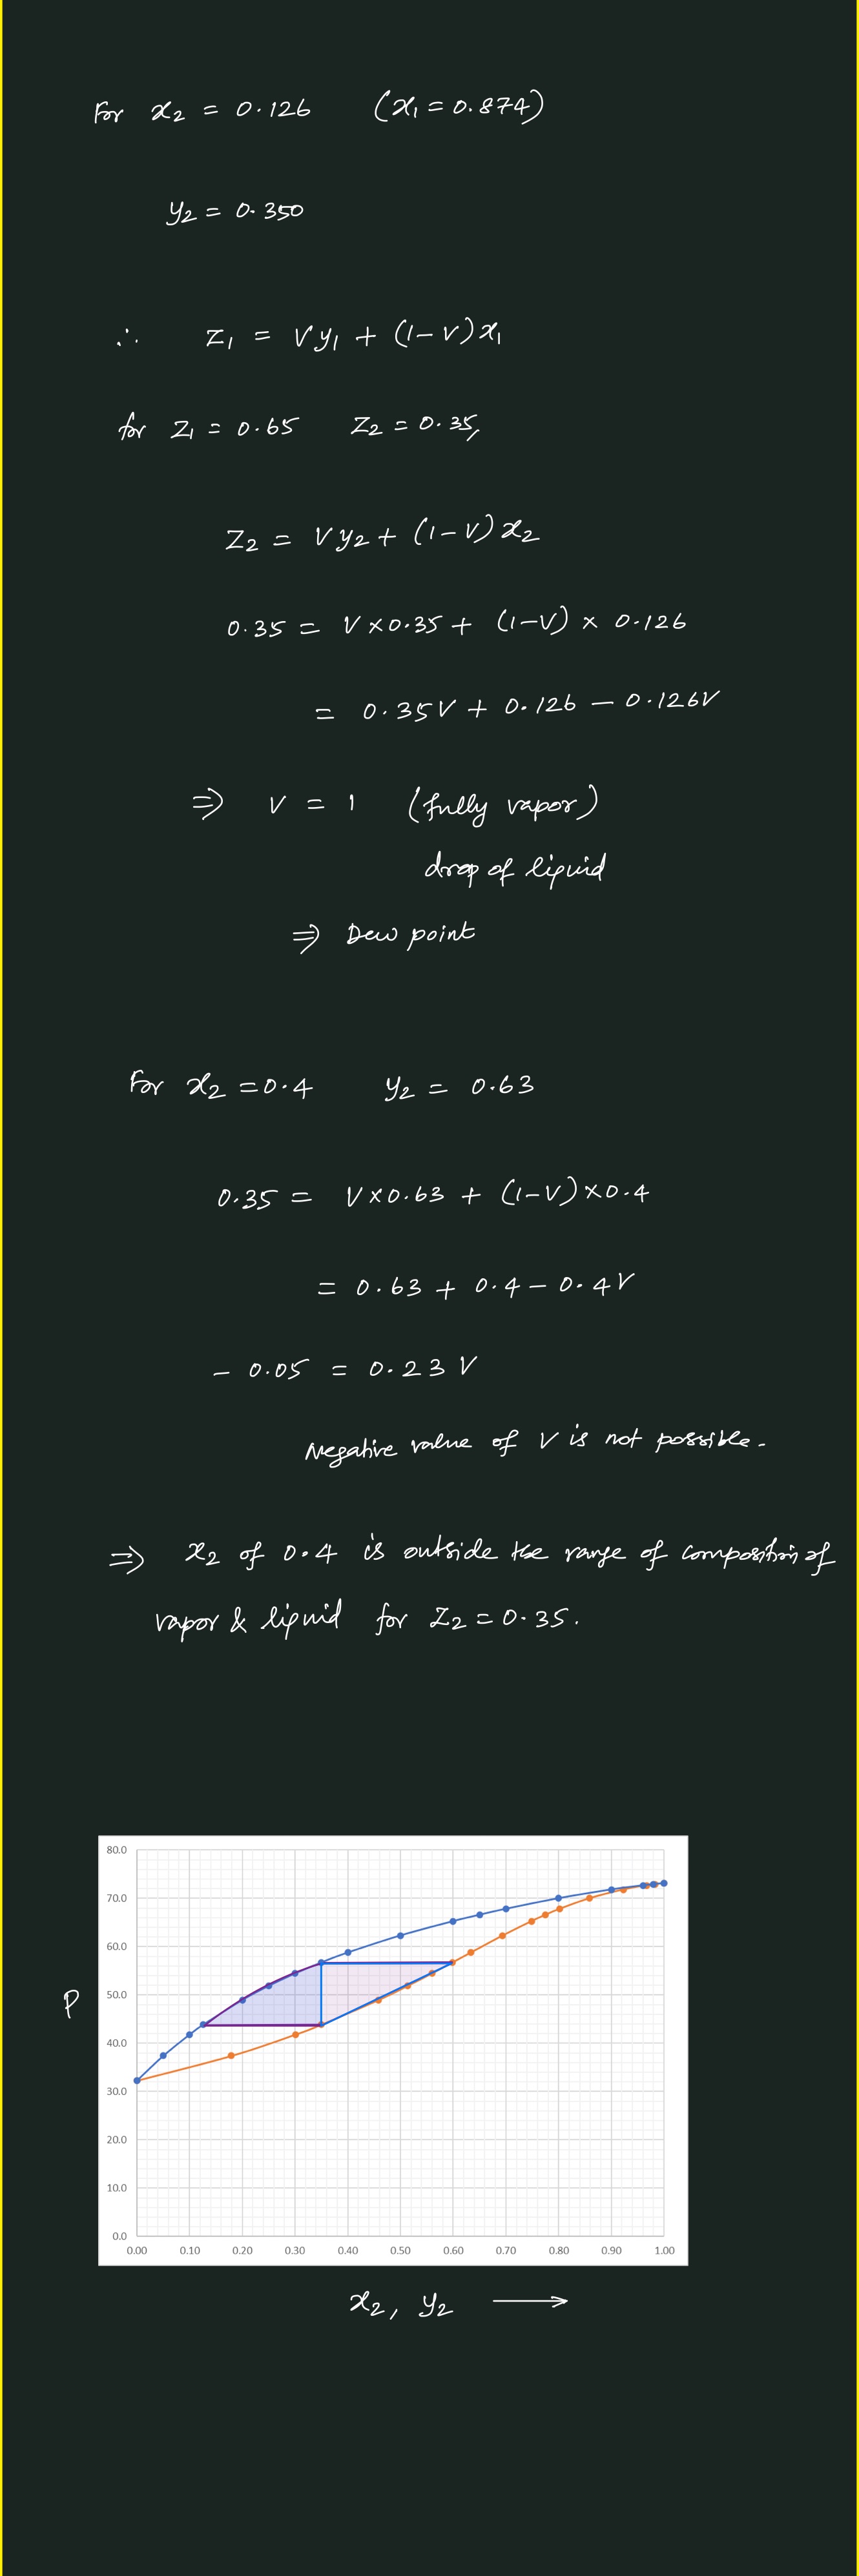 For x₂ = 0.126 (x₁ = 0.874)
y₂ = 0.350
∴ z₁ = Vy₁ + (1-V)x₁
for z₁ = 0.65 z₂ = 0.35,
z₂ = Vy₂ + (1-V)x₂
0.35 = V×0.35 + (1-V) × 0.126
= 0.35V + 0.126 - 0.126V
⇒ V = 1 (fully vapor)
drop of liquid
⇒ Dew point
For x₂ = 0.4 y₂ = 0.63
0.35 = V×0.63 + (1-V)×0.4
= 0.63 + 0.4 - 0.4V
- 0.05 = 0.23 V
Negative value of V is not possible.
⇒ x₂ of 0.4 is outside the range of composition of
vapor & liquid for z₂ = 0.35.
80.0
70.0
60.0
50.0
P
40.0
30.0
20.0
10.0
0.0
0.00 0.10 0.20 0.30 0.40 0.50 0.60 0.70 0.80 0.90 1.00
x₂, y₂ ⟶